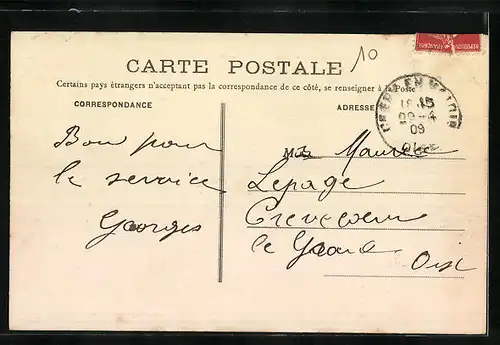 10
REPUBLIQUE FRANÇAISE
CARTE POSTALE
Certains pays étrangers n'acceptant pas la correspondance de ce côté, se renseigner à la Poste
CORRESPONDANCE
ADRESSE
CREPY-EN-VALOIS
18 15
22-4
09
OISE
Bon pour
le service
Georges
M. Maurice
Lepage
Crevecoeur
le Grand
Oise